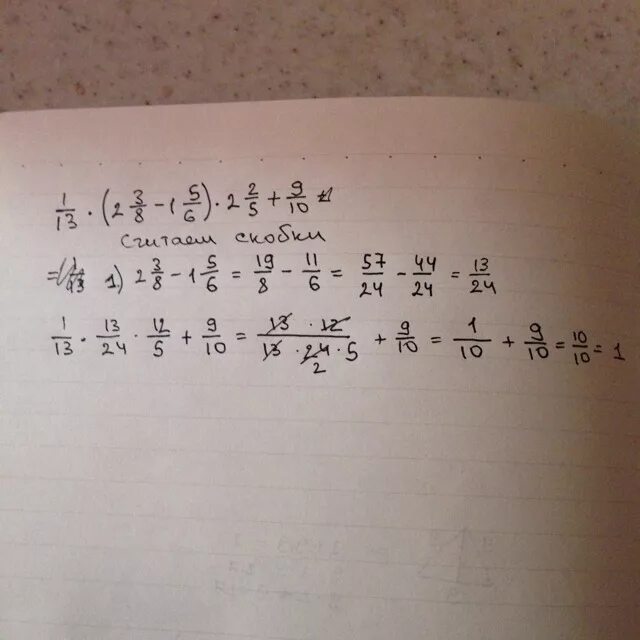 1/13 · (2 3/8 − 1 5/6) · 2 2/5 + 9/10
Считаем скобки
= 1) 2 3/8 − 1 5/6 = 19/8 − 11/6 = 57/24 − 44/24 = 13/24
1/13 · 13/24 · 12/5 + 9/10 = 13 · 12/13 · 24 · 5 + 9/10 = 1/10 + 9/10 = 10/10 = 1
2